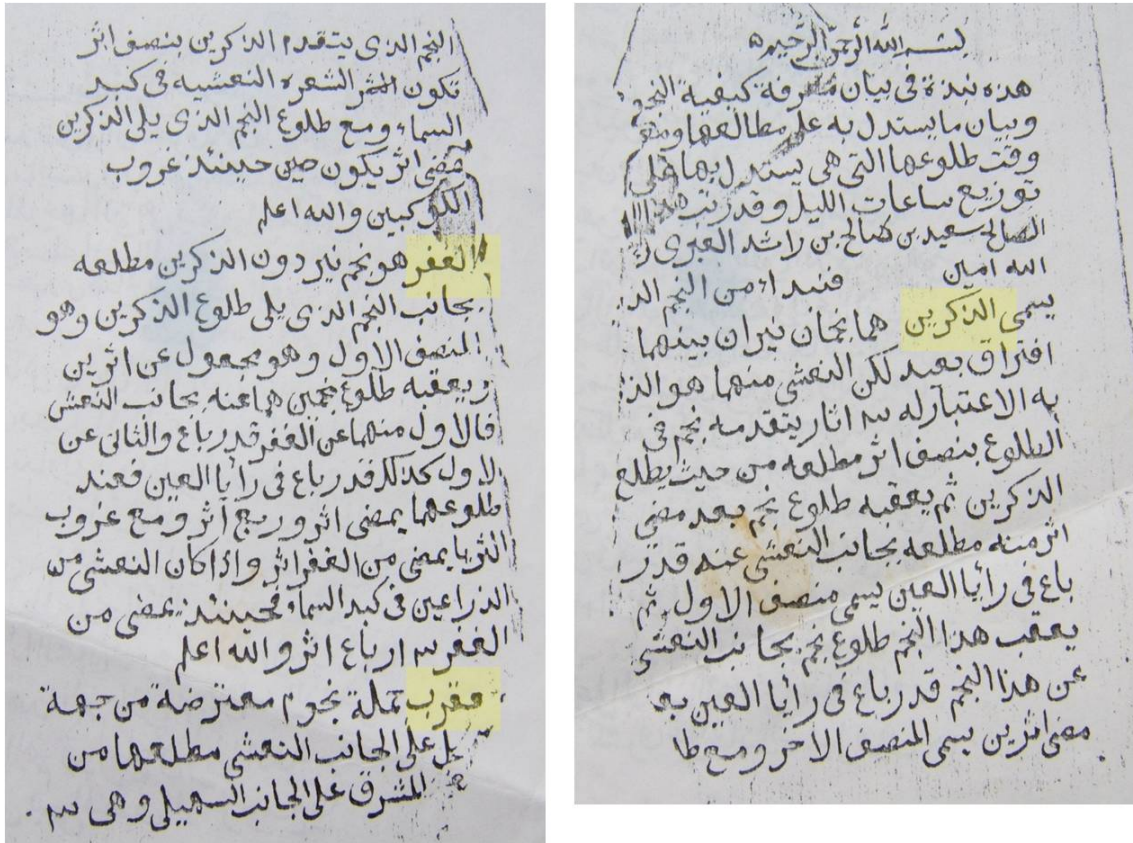 بسم الله الرحمن الرحيم
هذه نبذة في بيان معرفة كيفية النجوم
وبيان ما يستدل به على مطالعها
وقت طلوعها التي هي يستدل بها على
توزيع ساعات الليل وقد رتب هذا
الصالح سعيد بن صالح بن راشد العبري
الله امين فنبداء من النجم الذ
يسمى الذكرين هما نجمان نيران بينهما
افتراق بعيد لكن النعشي منهما هو الذ
به الاعتبار له اثار يتقدمه نجم في
الطلوع بنصف اثر مطلعه من حيث يطلع
الذكرين ثم يعقبه طلوع نجم بعد مضي
اثر منه مطلعه بجانب النعشي عنه قدر
باع في رأيا العين يسمى منصف الاول ثم
يعقب هذا النجم طلوع نجم بجانب النعشي
عن هذا النجم قدر باع في رأيا العين بعد
مضي اثرين يسمى المنصف الاخر ومع طلا
النجم الذي يتقدم الذكرين بنصف اثر
تكون الشعره النعشيه في كبد
السماء ومع طلوع النجم الذي يلي الذكرين
مضي اثر يكون حين حينئذ غروب
الكوكبين والله اعلم
الغفر هو نجم نير دون الذكرين مطلعه
بجانب النجم الذي يلي طلوع الذكرين وهو
المنصف الاول وهو مجعول عن اثرين
ويعقبه طلوع نجمين هما عنه بجانب النعش
فالاول منهما عن الغفر قدر باع والثاني عن
لاول كذلك قدر باع في رأيا العين فعند
طلوعهما يمضي اثر وربع اثر ومع غروب
الثريا يمضي من الغفر اثر واذا كان النعشي من
الذراعين في كبد السماء فحينئذ يمضي من
الغفر ارباع اثر والله اعلم
عقرب جملة نجوم معترضه من جهة
على الجانب النعشي مطلعها من
المشرق على الجانب السهيلي وهي